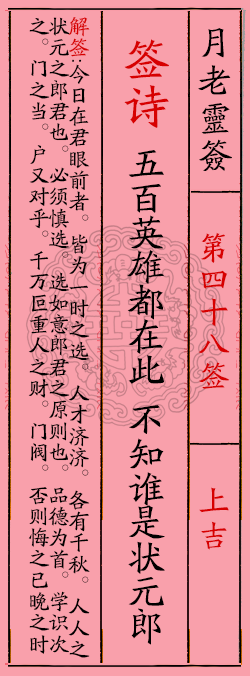 月老靈簽
第四十八签
上吉
签诗 五百英雄都在此 不知谁是状元郎
解签:今日在君眼前者。皆为一时之选。人才济济。各有千秋。人人之
状元之郎君也。必须慎选。选如意郎君之原则也。品德为首。学识次
之。门之当。户又对乎。千万叵重人之财。门阀。否则悔之已晚之时